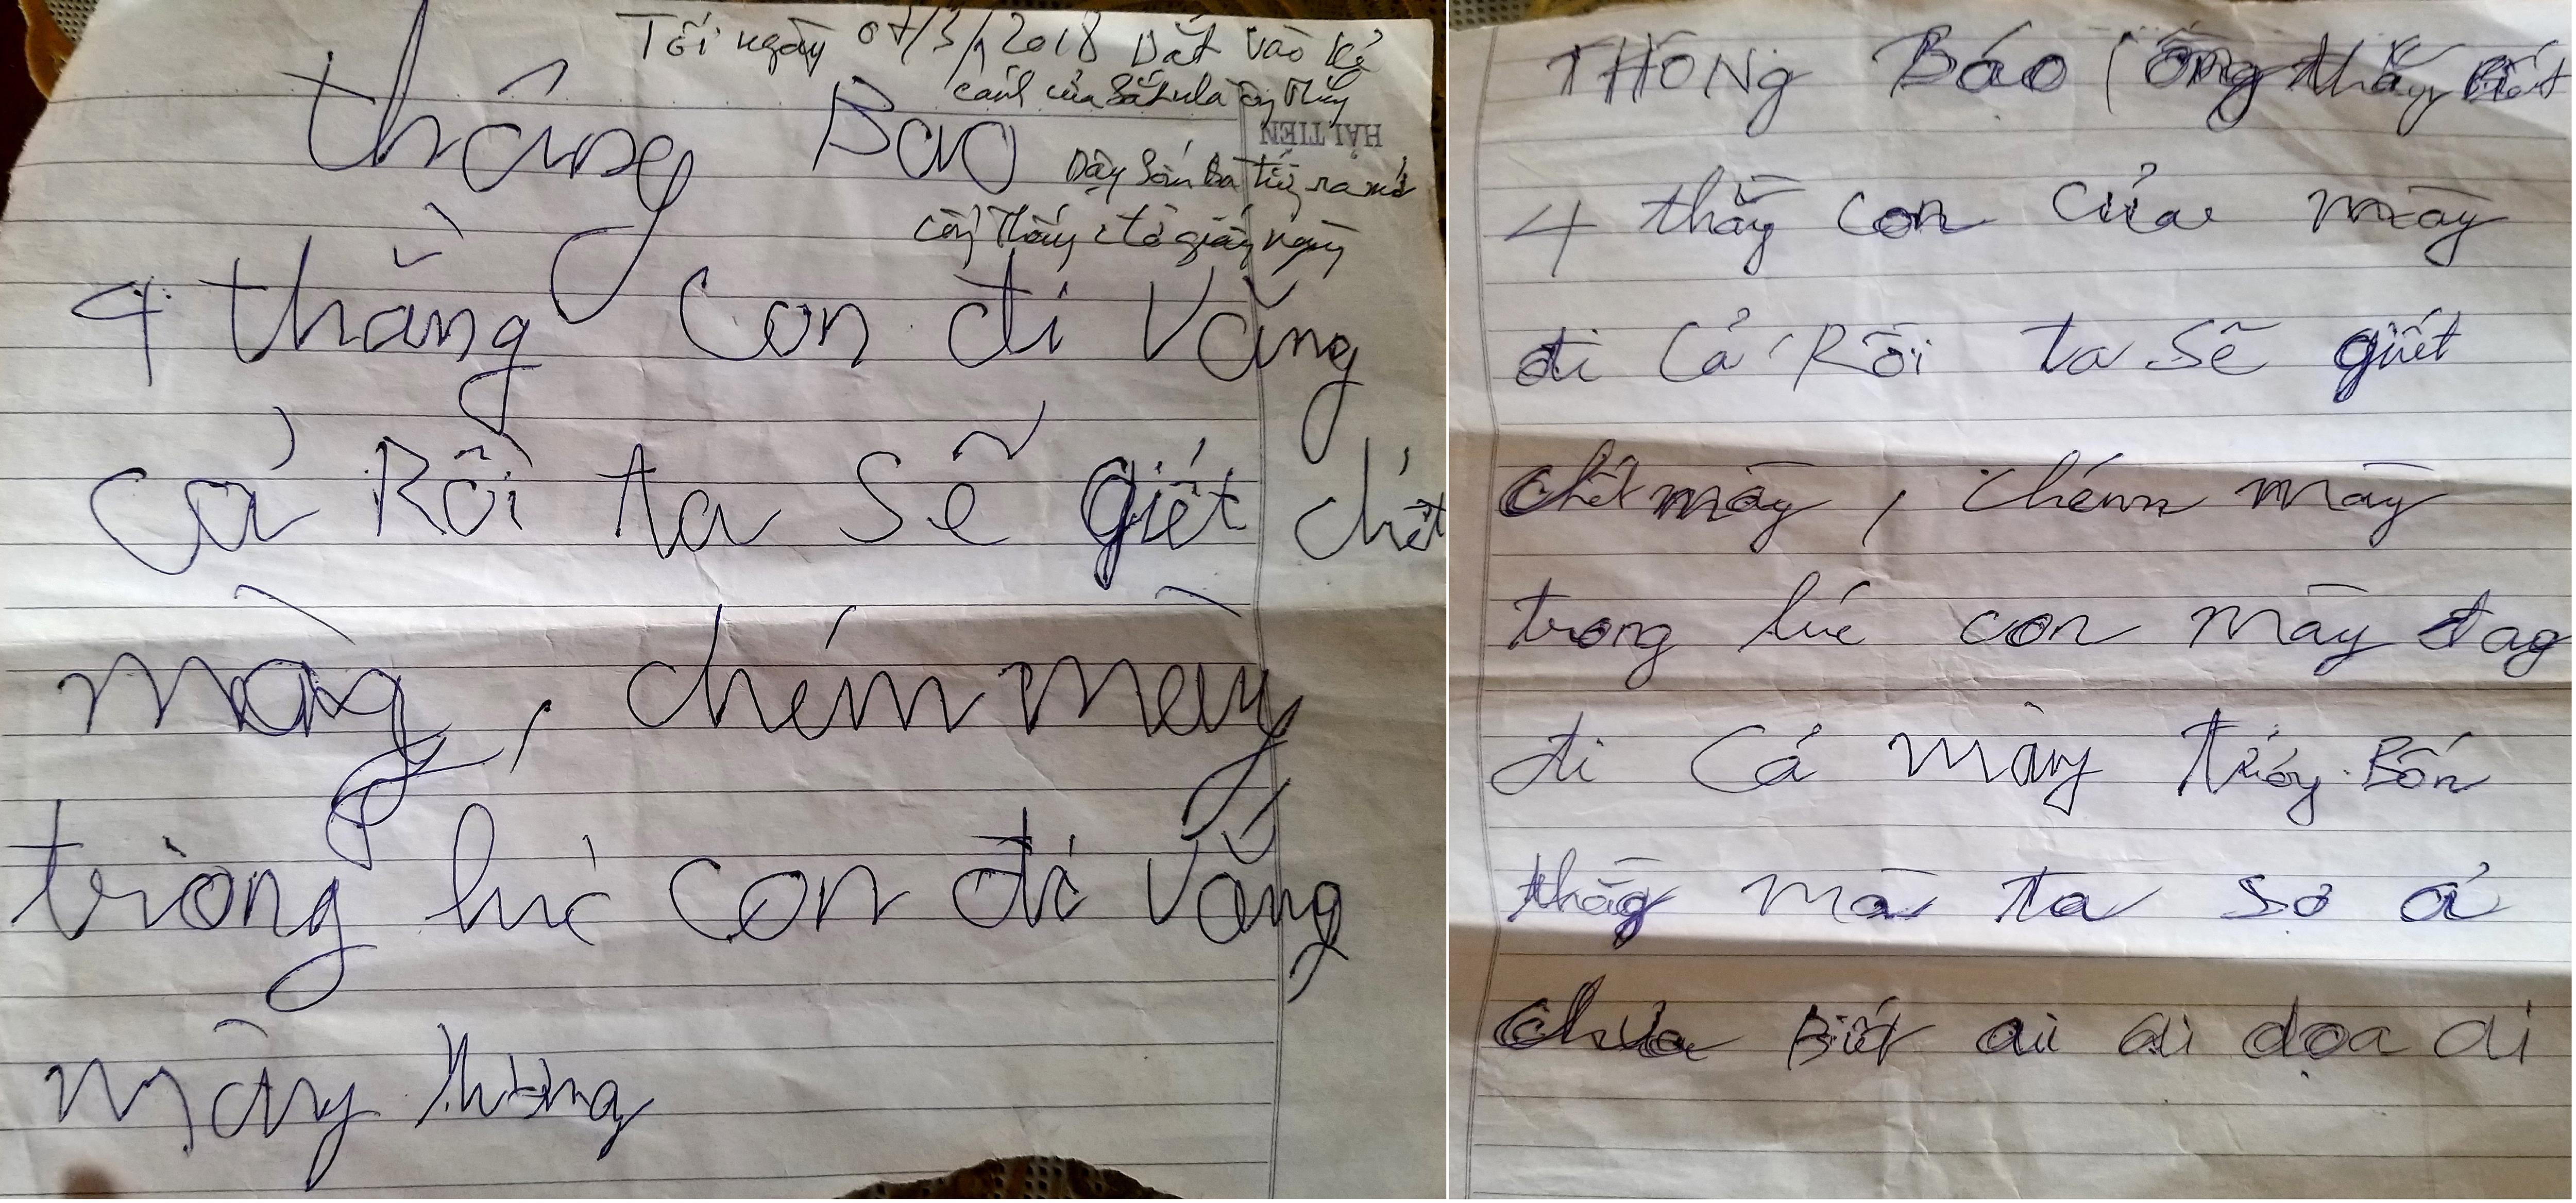 Tối ngày 07/3/2018 Dắt vào kẻ
cánh cửa Sắt của ông Thủy
thông Bao
HẢI TIẾN
Dậy Sớm Ba Thủy ra mở
cổng Thấy tờ giấy này
4 thằng Con đi Vắng
cả Rồi ta Sẽ giết chết
mày, chém mày
tròng lúc con đi Vắng
mày
THÔNG BÁO (ông
4 thằg con của mày
đi Cả Rồi ta Sẽ giết
chết mày, chém mày
trong lúc con mày đag
đi Cả mày Bốn
thằg mà ta Sợ á
chưa Biết ai ai dọa ai